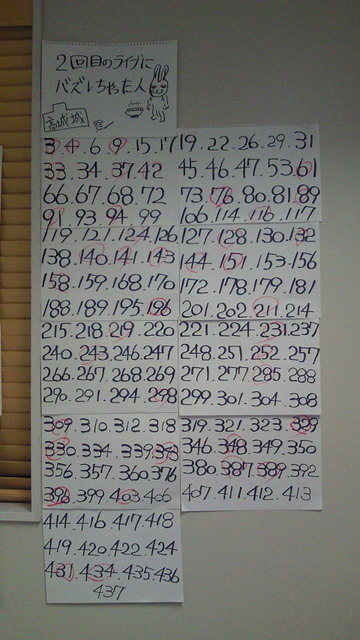 2回目のライブに
バズしちゃった人
高城城
3.4.6.9.15.17
33.34.37.42
66.67.68.72
91.93.94.99
19.22.26.29.31
45.46.47.53.61
73.76.80.81.89
106.114.116.117
119.121.124.126
138.140.141.143
158.159.168.170
188.189.195.196
127.128.130.132
144.151.153.156
172.178.179.181
201.202.211.214
215.218.219.220
240.243.246.247
266.267.268.269
290.291.294.298
221.224.231.237
248.251.252.257
271.277.285.288
299.301.304.308
309.310.312.318
330.334.339.343
356.357.360.376
396.399.403.406
319.321.323.329
346.348.349.350
380.387.389.392
407.411.412.413
414.416.417.418
419.420.422.424
431.434.435.436
437